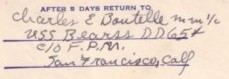 AFTER 5 DAYS RETURN TO
Charles E Boutelle mm 1/c
USS Bearss DD654
c/o F.P.M.
San Francisco, Calf